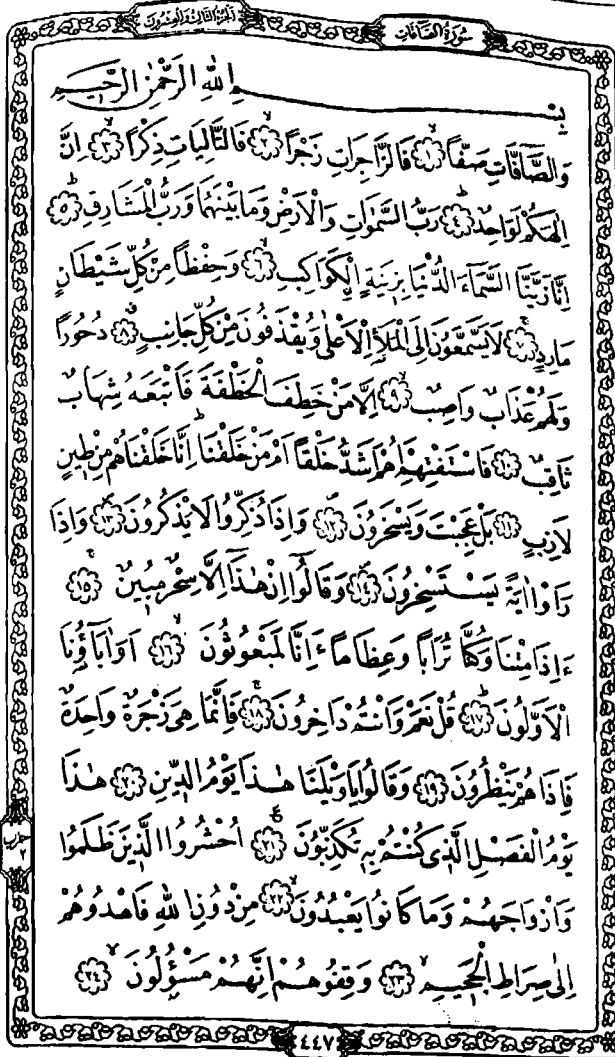 الجزء الثالث والعشرون
سورة الصافات
بسم الله الرحمن الرحيم
وَالصَّافَّاتِ صَفًّا ﴿١﴾ فَالزَّاجِرَاتِ زَجْرًا ﴿٢﴾ فَالتَّالِيَاتِ ذِكْرًا ﴿٣﴾ اِنَّ
اِلٰهَكُمْ لَوَاحِدٌ ﴿٤﴾ رَبُّ السَّمٰوَاتِ وَالْاَرْضِ وَمَا بَيْنَهُمَا وَرَبُّ الْمَشَارِقِ ﴿٥﴾
اِنَّا زَيَّنَّا السَّمَٓاءَ الدُّنْيَا بِزِينَةٍ الْكَوَاكِبِ ﴿٦﴾ وَحِفْظًا مِنْ كُلِّ شَيْطَانٍ
مَارِدٍ ﴿٧﴾ لَا يَسَّمَّعُونَ اِلَى الْمَلَأِ الْاَعْلٰى وَيُقْذَفُونَ مِنْ كُلِّ جَانِبٍ ﴿٨﴾ دُحُورًا
وَلَهُمْ عَذَابٌ وَاصِبٌ ﴿٩﴾ اِلَّا مَنْ خَطِفَ الْخَطْفَةَ فَاَتْبَعَهُ شِهَابٌ
ثَاقِبٌ ﴿١٠﴾ فَاسْتَفْتِهِمْ اَهُمْ اَشَدُّ خَلْقًا اَمْ مَنْ خَلَقْنَا اِنَّا خَلَقْنَاهُمْ مِنْ طِينٍ
لَازِبٍ ﴿١١﴾ بَلْ عَجِبْتَ وَيَسْخَرُونَ ﴿١٢﴾ وَاِذَا ذُكِّرُوا لَا يَذْكُرُونَ ﴿١٣﴾ وَاِذَا
رَاَوْا اٰيَةً يَسْتَسْخِرُونَ ﴿١٤﴾ وَقَالُٓوا اِنْ هٰذَٓا اِلَّا سِحْرٌ مُبِينٌ ﴿١٥﴾
ءَاِذَا مِتْنَا وَكُنَّا تُرَابًا وَعِظَامًا ءَاِنَّا لَمَبْعُوثُونَ ﴿١٦﴾ اَوَاٰبَٓاؤُنَا
الْاَوَّلُونَ ﴿١٧﴾ قُلْ نَعَمْ وَاَنْتُمْ دَاخِرُونَ ﴿١٨﴾ فَاِنَّمَا هِىَ زَجْرَةٌ وَاحِدَةٌ
فَاِذَا هُمْ يَنْظُرُونَ ﴿١٩﴾ وَقَالُوا يَا وَيْلَنَا هٰذَا يَوْمُ الدِّينِ ﴿٢٠﴾ هٰذَا
يَوْمُ الْفَصْلِ الَّذِى كُنْتُمْ بِهِ تُكَذِّبُونَ ﴿٢١﴾ اُحْشُرُوا الَّذِينَ ظَلَمُوا
وَاَزْوَاجَهُمْ وَمَا كَانُوا يَعْبُدُونَ ﴿٢٢﴾ مِنْ دُونِ اللهِ فَاهْدُوهُمْ
اِلٰى صِرَاطِ الْجَحِيمِ ﴿٢٣﴾ وَقِفُوهُمْ اِنَّهُمْ مَسْؤُلُونَ ﴿٢٤﴾
حزب
٢
٤٤٧